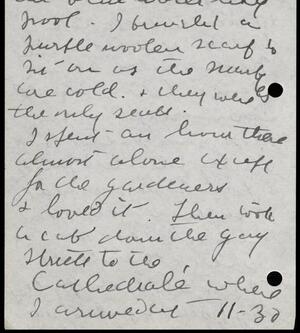 pool. I brought a
purple woolen scarf to
sit on as the seats
are cold. & they were
the only seats.
I spent an hour there
almost alone except
for the gardeners
& loved it. Then took
a cab down the gay
streets to the
Cathedral where
I arrived at 11-30